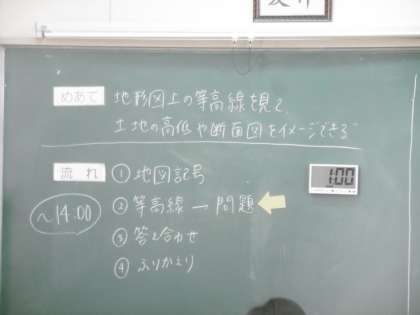 めあて 地形図上の等高線を見て、
土地の高低や断面図をイメージできる
流れ ①地図記号
1:00
～14:00
②等高線 → 問題
③答え合わせ
④ふりかえり